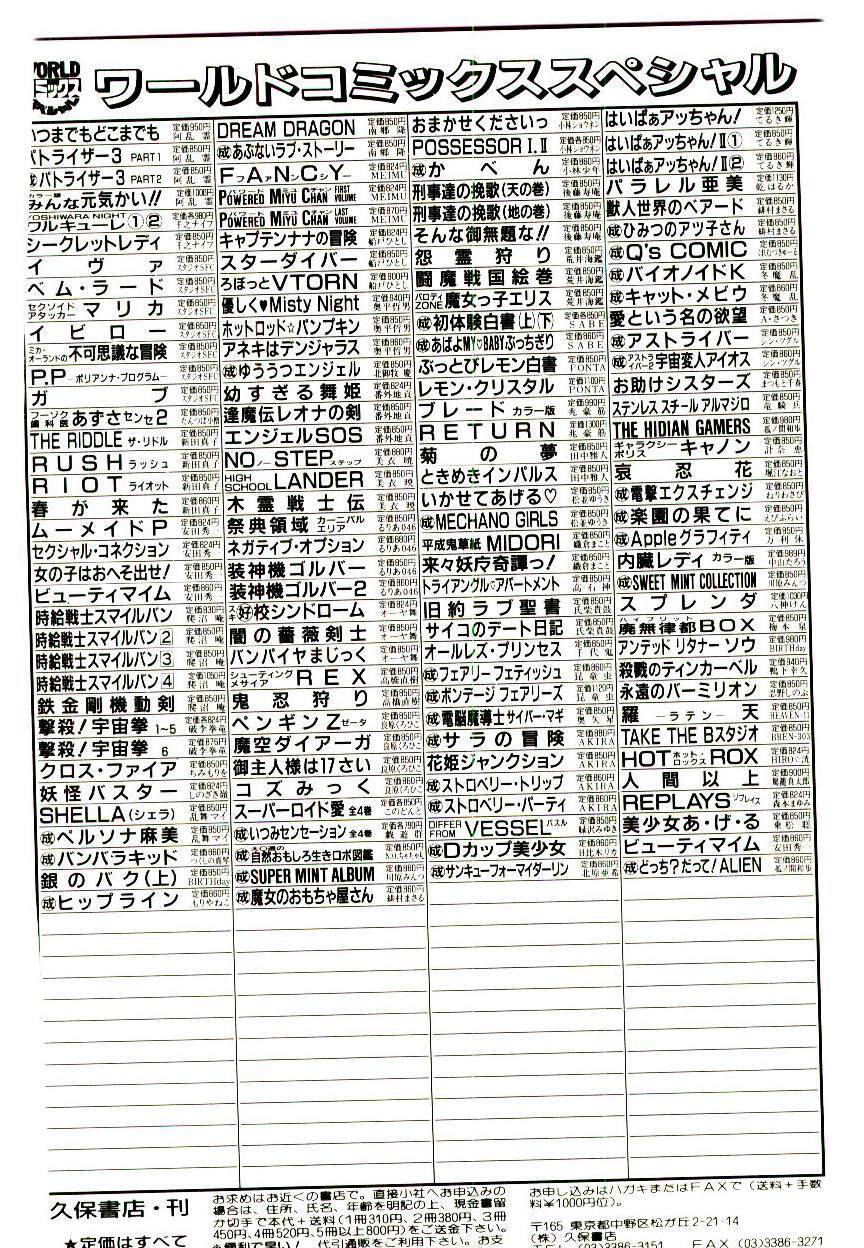 WORLD
コミックス
ワールドコミックススペシャル
いつまでもどこまでも 定価950円 阿乱霊
バトライザー3 PART1 定価850円 阿乱霊
成バトライザー3 PART2 定価850円 阿乱霊
みんな元気かい!! 定価1000円 阿乱霊
YOSHIWARA NIGHT
ワルキューレ①② 定価各980円 千之ナイフ
シークレットレディ 定価850円 千之ナイフ
イヴァ 定価850円 スタジオSFC
ベム・ラード 定価850円 スタジオSFC
セクソイドアタッカー マリカ 定価850円 スタジオSFC
イビロー 定価850円 スタジオSFC
ミカ・オーランドの不可思議な冒険 定価850円 スタジオSFC
P.P. ーポリアンナ・プログラムー 定価850円 スタジオSFC
ガブ 定価850円
フーゾク歯科医 あずさセンセ2 定価850円
THE RIDDLE ザ・リドル 定価850円 新田真子
RUSH ラッシュ 定価850円 新田真子
RIOT ライオット 定価850円 新田真子
春が来た 定価860円 新田真子
ムーメイドP 定価824円 安田秀一
セクシャル・コネクション 定価824円 安田秀一
女の子はおへそ出せ! 定価850円 安田秀一
ビューティマイム 定価860円 安田秀一
時給戦士スマイルバン 定価830円 爬沼庵
時給戦士スマイルバン2 定価850円 爬沼庵
時給戦士スマイルバン3 定価850円 爬沼庵
時給戦士スマイルバン4 定価1050円 爬沼庵
鉄金剛機動剣 定価850円 爬沼庵
撃殺!宇宙拳 1~5 定価各824円 破李拳竜
撃殺!宇宙拳 6 定価876円 破李拳竜
クロス・ファイア 定価850円 ちみもりを
妖怪バスター 定価824円 しのざき嶺
SHELLA(シェラ) 定価850円 乱舞マイ
成ペルソナ麻美 定価850円 乱舞マイ
成バンバラキッド 定価860円 つくしの真琴
銀のバク(上) 定価850円 BIRTHday
成ヒップライン 定価860円 もりやねこ
DREAM DRAGON 定価850円 南郷隆
成あぶないラブ・ストーリー 定価850円
FァAァNシCィY 定価824円 MEIMU
パワード ミユ チャン FIRST VOLUME
POWERED MIYU CHAN 定価824円 MEIMU
パワード ミユ チャン LAST VOLUME
POWERED MIYU CHAN 定価870円 MEIMU
キャプテンナナの冒険 定価824円 船戸ひとし
スターダイバー 定価850円 船戸ひとし
ろぼっとVTORN 定価800円 船戸ひとし
優しく♥Misty Night 定価840円 奥平哲男
ホットロッド☆パンプキン 定価850円 奥平哲男
アネキはデンジャラス 定価860円 奥平哲男
成ゆううつエンジェル 定価850円 北御牧慶
幼すぎる舞姫 定価824円 番外地貢
逢魔伝レオナの剣 定価850円 番外地貢
エンジェルSOS 定価850円 番外地貢
NOノーSTEPステップ 定価860円 美衣暁
HIGH SCHOOL LANDER 定価850円 美衣暁
木霊戦士伝 定価850円 るりあ046
祭典領域 カーニバルエリア 定価824円 るりあ046
ネガティブ・オプション 定価880円 るりあ046
装神機ゴルバー 定価850円 るりあ046
装神機ゴルバー2 定価860円 るりあ046
スキ好校シンドローム 定価824円 オーヤ舞
闇の薔薇剣士 定価850円 オーヤ舞
バンパイヤまじっく 定価850円 オーヤ舞
シューティングメサイア REX 定価850円 高橋直樹
鬼忍狩り 定価850円 高橋直樹
ペンギンZゼータ 定価850円 良原くろひこ
魔空ダイアーガ 定価850円 良原くろひこ
御主人様は17さい 定価850円 良原くろひこ
コズみっく 定価860円 良原くろひこ
スーパーロイド愛 全4巻 定価各850円 このどんと
成いつみセンセーション 全4巻 定価各790円 戯遊群
成自然おもしろ生きロボ図鑑 定価850円
成SUPER MINT ALBUM 定価860円 川原みんつ
成魔女のおもちゃ屋さん 定価860円 緋村まさる
おまかせくださいっ 定価850円 小林ショウネン
POSSESSOR I.II 定価各850円 小林ショウネン
成かべん 定価860円 小林少年
刑事達の挽歌(天の巻) 定価850円 後藤寿庵
刑事達の挽歌(地の巻) 定価850円 後藤寿庵
そんな御無題な!! 定価850円 後藤寿庵
怨霊狩り 定価850円 荒井海鑑
闘魔戦国絵巻 定価850円 荒井海鑑
パロディZONE魔女っ子エリス 定価850円 荒井海鑑
成初体験白書(上)(下) 定価各850円 SABE
成あばよMY♡BABYぶっちぎり 定価860円 SABE
ぶっとびレモン白書 定価850円 PONTA
レモン・クリスタル 定価1100円 PONTA
ブレード カラー版 定価990円 兆豪筋
RETURN 定価1300円 兆豪筋
菊の夢 定価850円 田中雅人
ときめきインパルス 定価850円 田中雅人
いかせてあげる♡ 定価850円 松並ゆうき
成MECHANO GIRLS 定価850円 松並ゆうき
平成鬼草紙MIDORI 定価850円 織倉まこと
来々妖斥奇譚っ! 定価850円 織倉まこと
トライアングル♡アパートメント 定価850円 高石神
旧約ラブ聖書 定価850円 氏柴貴龍
サイコのデート日記 定価850円 氏柴貴龍
オールレズ・プリンセス 定価850円 千代鬼
成フェアリー フェティッシュ 定価860円 昆童虫
成ボンデージ フェアリーズ 定価1120円 昆童虫
成電脳魔導士サイバー・マギ 定価850円 奥久星
成サラの冒険 定価880円 AKIRA
花姫ジャンクション 定価850円 AKIRA
成ストロベリー・トリップ 定価850円 AKIRA
成ストロベリー・パーティ 定価860円 AKIRA
DIFFER FROM VESSEL バスル 定価850円 城沢みゆき
成Dカップ美少女 定価860円 日比木リカ
成サンキューフォーマイダーリン 定価860円 北原亜希
はいぱぁアッちゃん! 定価1250円 てるき輝
はいぱぁアッちゃん!II① 定価850円 てるき輝
はいぱぁアッちゃん!II② 定価860円 てるき輝
パラレル亜美 定価1130円 乾はるか
獣人世界のベアード 定価850円 緋村まさる
成ひみつのアツ子さん 定価850円 緋村まさる
成Q's COMIC 定価850円
成バイオノイドK 定価850円 冬魔乱
成キャット・メビウ 定価860円 冬魔乱
愛という名の欲望 定価850円 A・さつき
成アストライバー 定価850円 シン・ツグル
成アストライバー2 宇宙変人アイオス 定価860円 シン・ツグル
お助けシスターズ 定価850円 まつもと千春
ステンレス スチール アルマジロ 定価850円 竜騎兵
THE HIDIAN GAMERS 定価980円
ギャラクシーポリス キャノン 定価850円 計奈恵
哀忍花 定価850円 堀江なおと
成電撃エクスチェンジ 定価850円 ねりわさび
成楽園の果てに 定価850円 えびふらい
成Appleグラフィティ 定価850円 力利休
内臓レディ カラー版 定価989円 中山たろう
成SWEET MINT COLLECTION 定価850円 川原みんつ
スプレンダ 定価1030円 八神けん
ハイブリット
魔無律都BOX 定価850円 梅本泉
アンデッド リタナー ソウ 定価980円 BIRTHday
殺戮のティンカーベル 定価940円 鴨下幸久
永遠のバーミリオン 定価850円 忍野しのぶ
羅ーラテンー天 定価850円 HEAVEN-11
TAKE THE Bスタジオ 定価850円 BREN-303
HOTホット・ロックスROX 定価824円 HIRO公洸
人間以上 定価900円
REPLAYS リプレイズ 定価824円 森本まゆみ
美少女あ・げ・る 定価850円 東松聡
ビューティマイム 定価860円 安田秀一
成どっち?だって!ALIEN 定価860円
久保書店・刊
★定価はすべて
お求めはお近くの書店で。直接小社へお申込みの
場合は、住所、氏名、年齢を明記の上、現金書留
か切手で本代+送料(1冊310円、2冊380円、3冊
450円、4冊520円、5冊以上800円)をご送金下さい。
＊便利で早い! 代引通販をご利用下さい。お支
お申し込みはハガキまたはFAXで(送料+手数
料¥1000円位)。
〒165 東京都中野区松が丘2-21-14
(株)久保書店
TEL (03)3386-3151 FAX (03)3386-3271